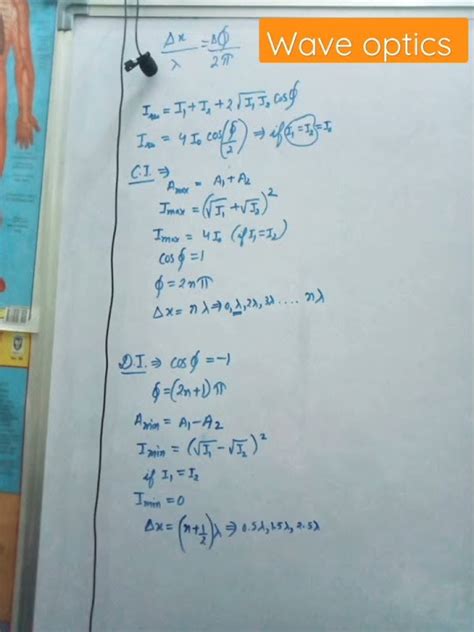 Wave optics
Δx/λ = Δϕ/2π
I_m = I₁ + I₂ + 2√I₁I₂ cosϕ
I_m = 4I₀ cos(ϕ/2) ⇒ if I₁ = I₂ = I₀
C.I. ⇒
A_max = A₁ + A₂
I_max = (√I₁ + √I₂)²
I_max = 4I₀ (if I₁ = I₂)
cosϕ = 1
ϕ = 2nπ
Δx = nλ ⇒ 0, λ, 2λ, 3λ .... nλ
D.I. ⇒ cosϕ = -1
ϕ = (2n+1)π
A_min = A₁ - A₂
I_min = (√I₁ - √I₂)²
if I₁ = I₂
I_min = 0
Δx = (n + 1/2)λ ⇒ 0.5λ, 1.5λ, 2.5λ